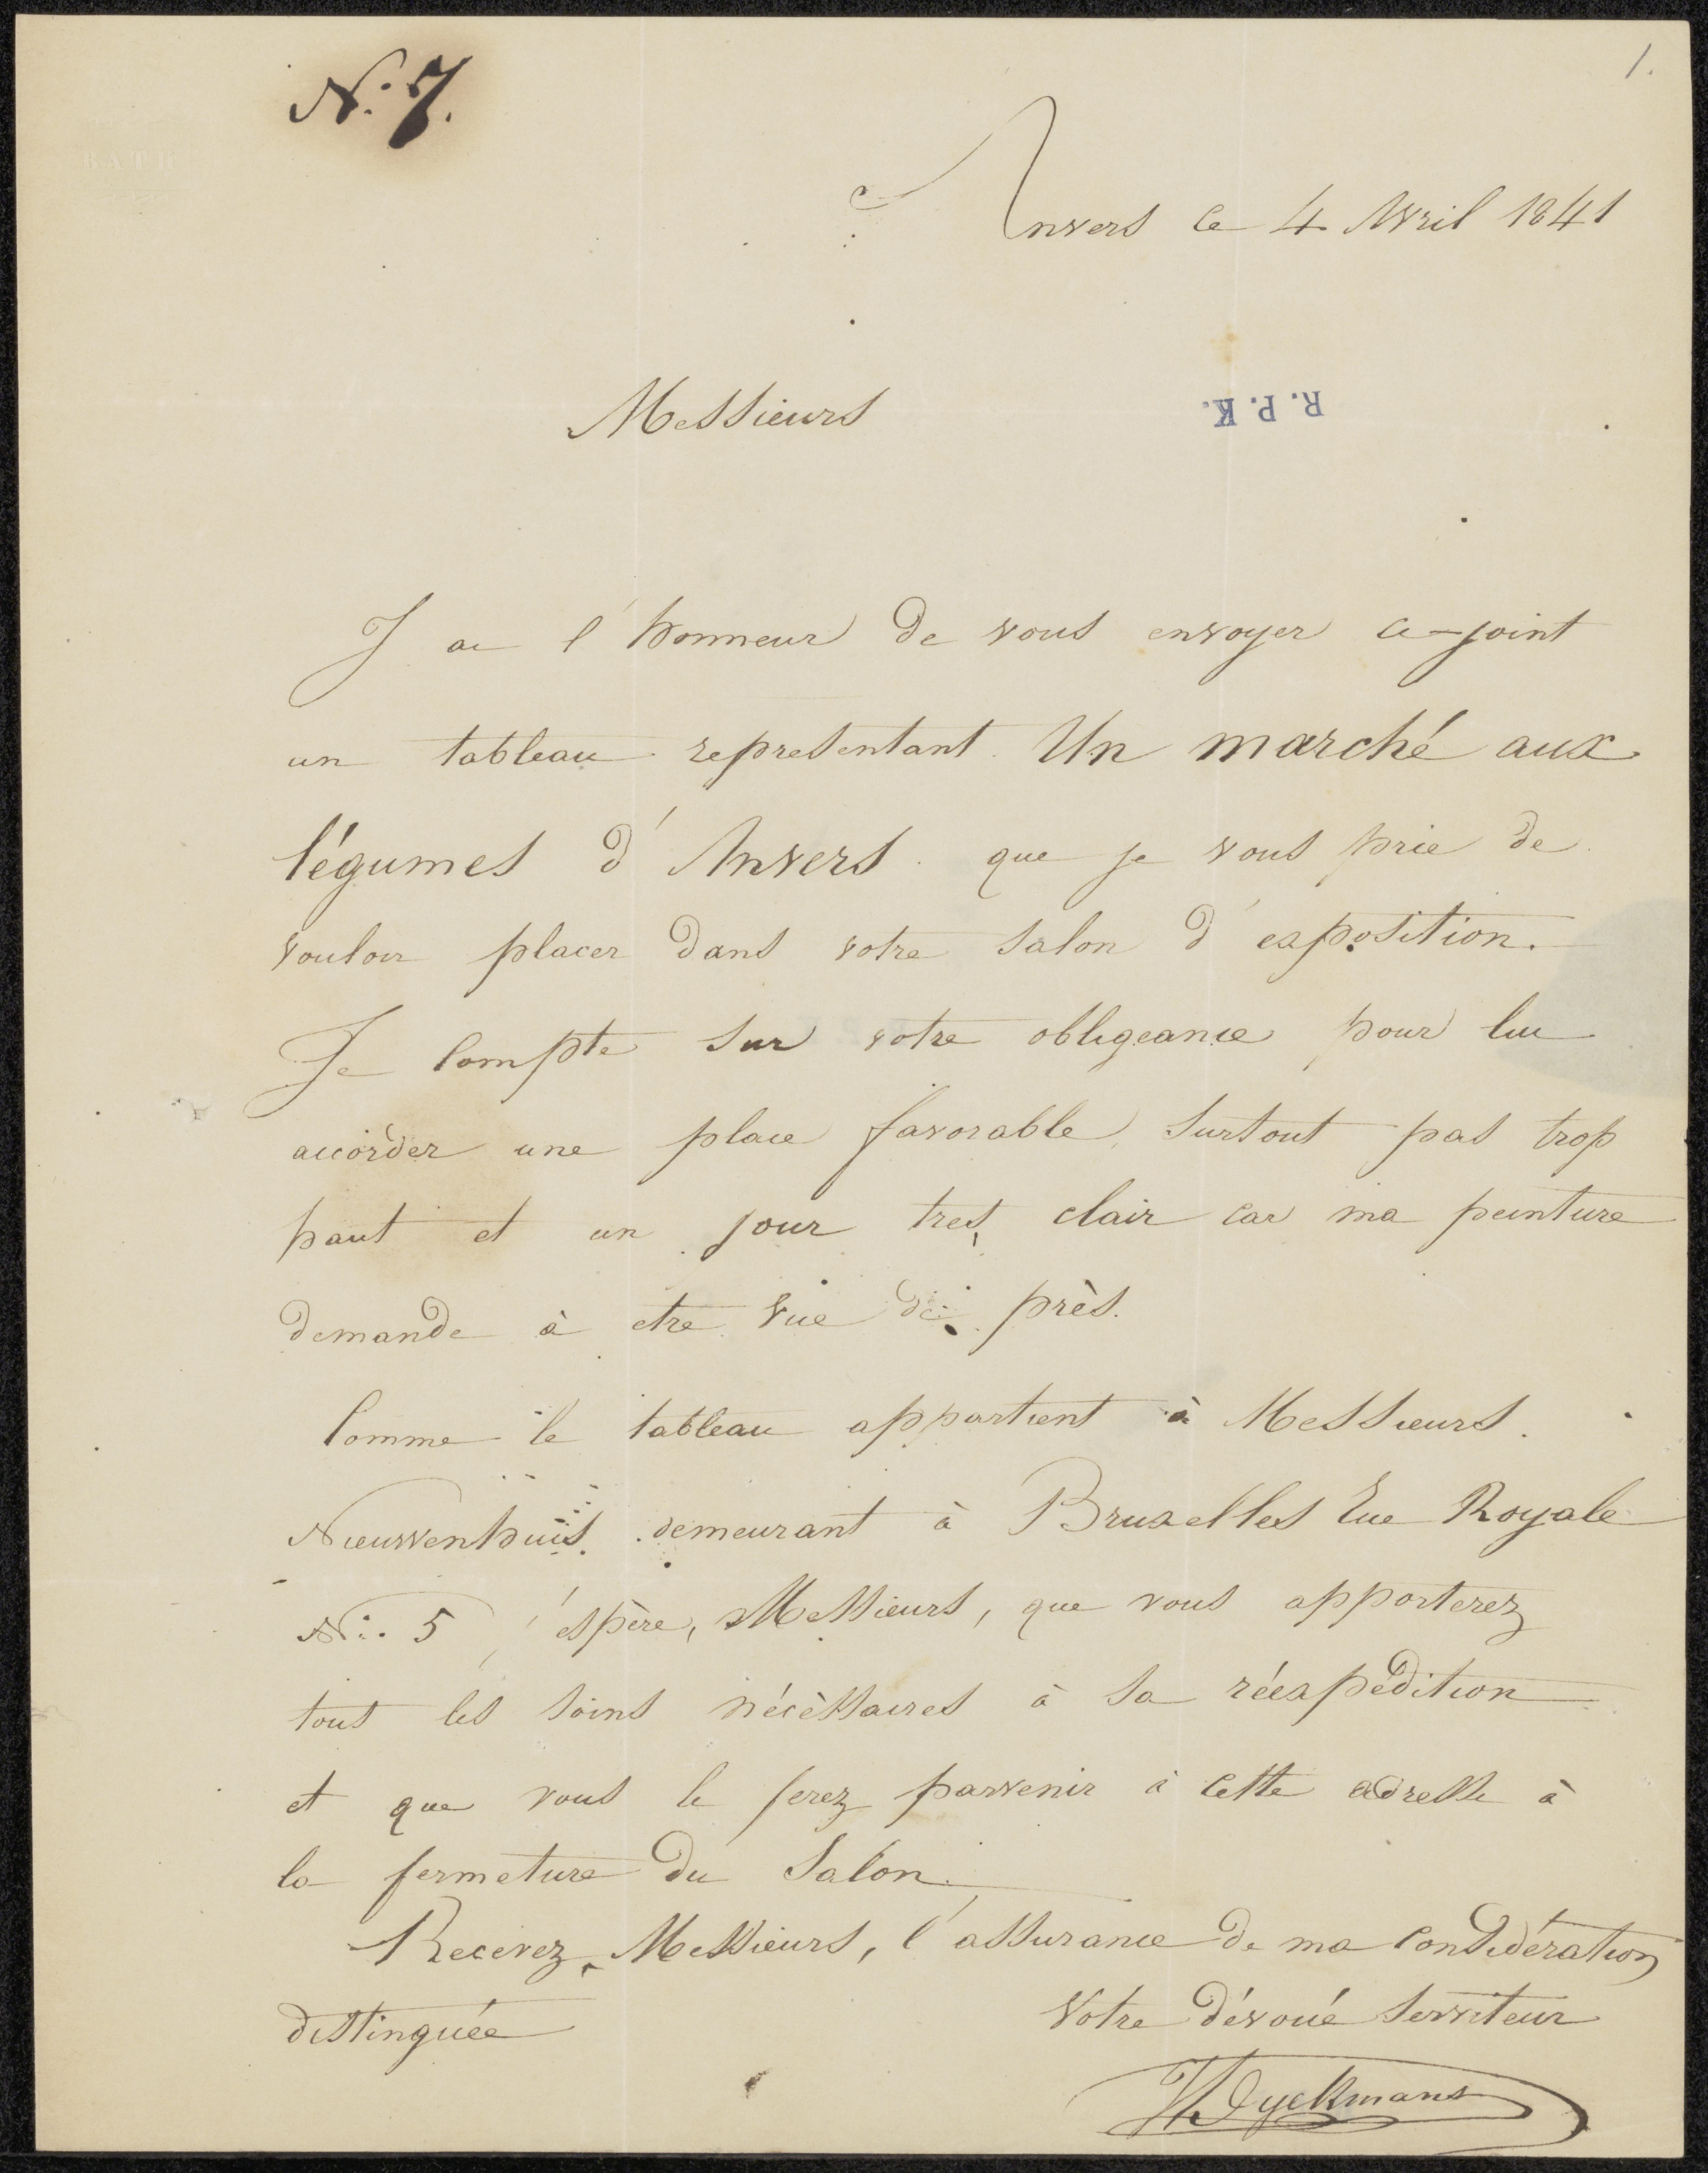 1.
N:. 7.
BATH
Anvers le 4 Avril 1841
Messieurs
R. P. K.
J ai l'honneur de vous envoyer ci-joint
un tableau representant Un marché aux
légumes d'Anvers que je vous prie de
vouloir placer dans votre salon d'exposition.
Je compte sur votre obligeance pour lui
accorder une place favorable, surtout pas trop
haut et un jour tres clair car ma peinture
demande à etre vue de près.
Comme le tableau appartient à Messieurs
Nieuwenhuis demeurant à Bruxelles Rue Royale
N:. 5 j'espère, Messieurs, que vous apporterez
tous les soins nécèssaires à sa réexpédition
et que vous le ferez parvenir à cette adresse à
la fermeture du Salon.
Recevez, Messieurs, l'assurance de ma considération
distinguée
Votre dévoué serviteur
JL Dyckmans